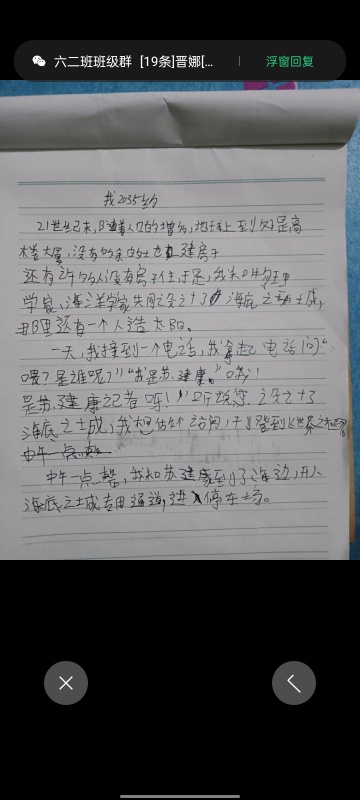 六二班班级群 [19条]晋娜[...
浮窗回复
我2035的
21世纪末，随着人口的增多，地球上到处是高
楼大厦，没有多余的土地建房子
还有许多的人没有房子住，于是，我和
学家，海洋学家共同设计了海底之城，
那里还有一个人造太阳。
一天，我接到一个电话，我拿起电话问“
喂？是谁呢？”“我是苏建康。”哦！
是苏建康记者呀！”听说您设计了
海底之城，我想
中午一点整
中午一点整，我和苏建康到了海边，从
海底之城专用通道，进入停车场。